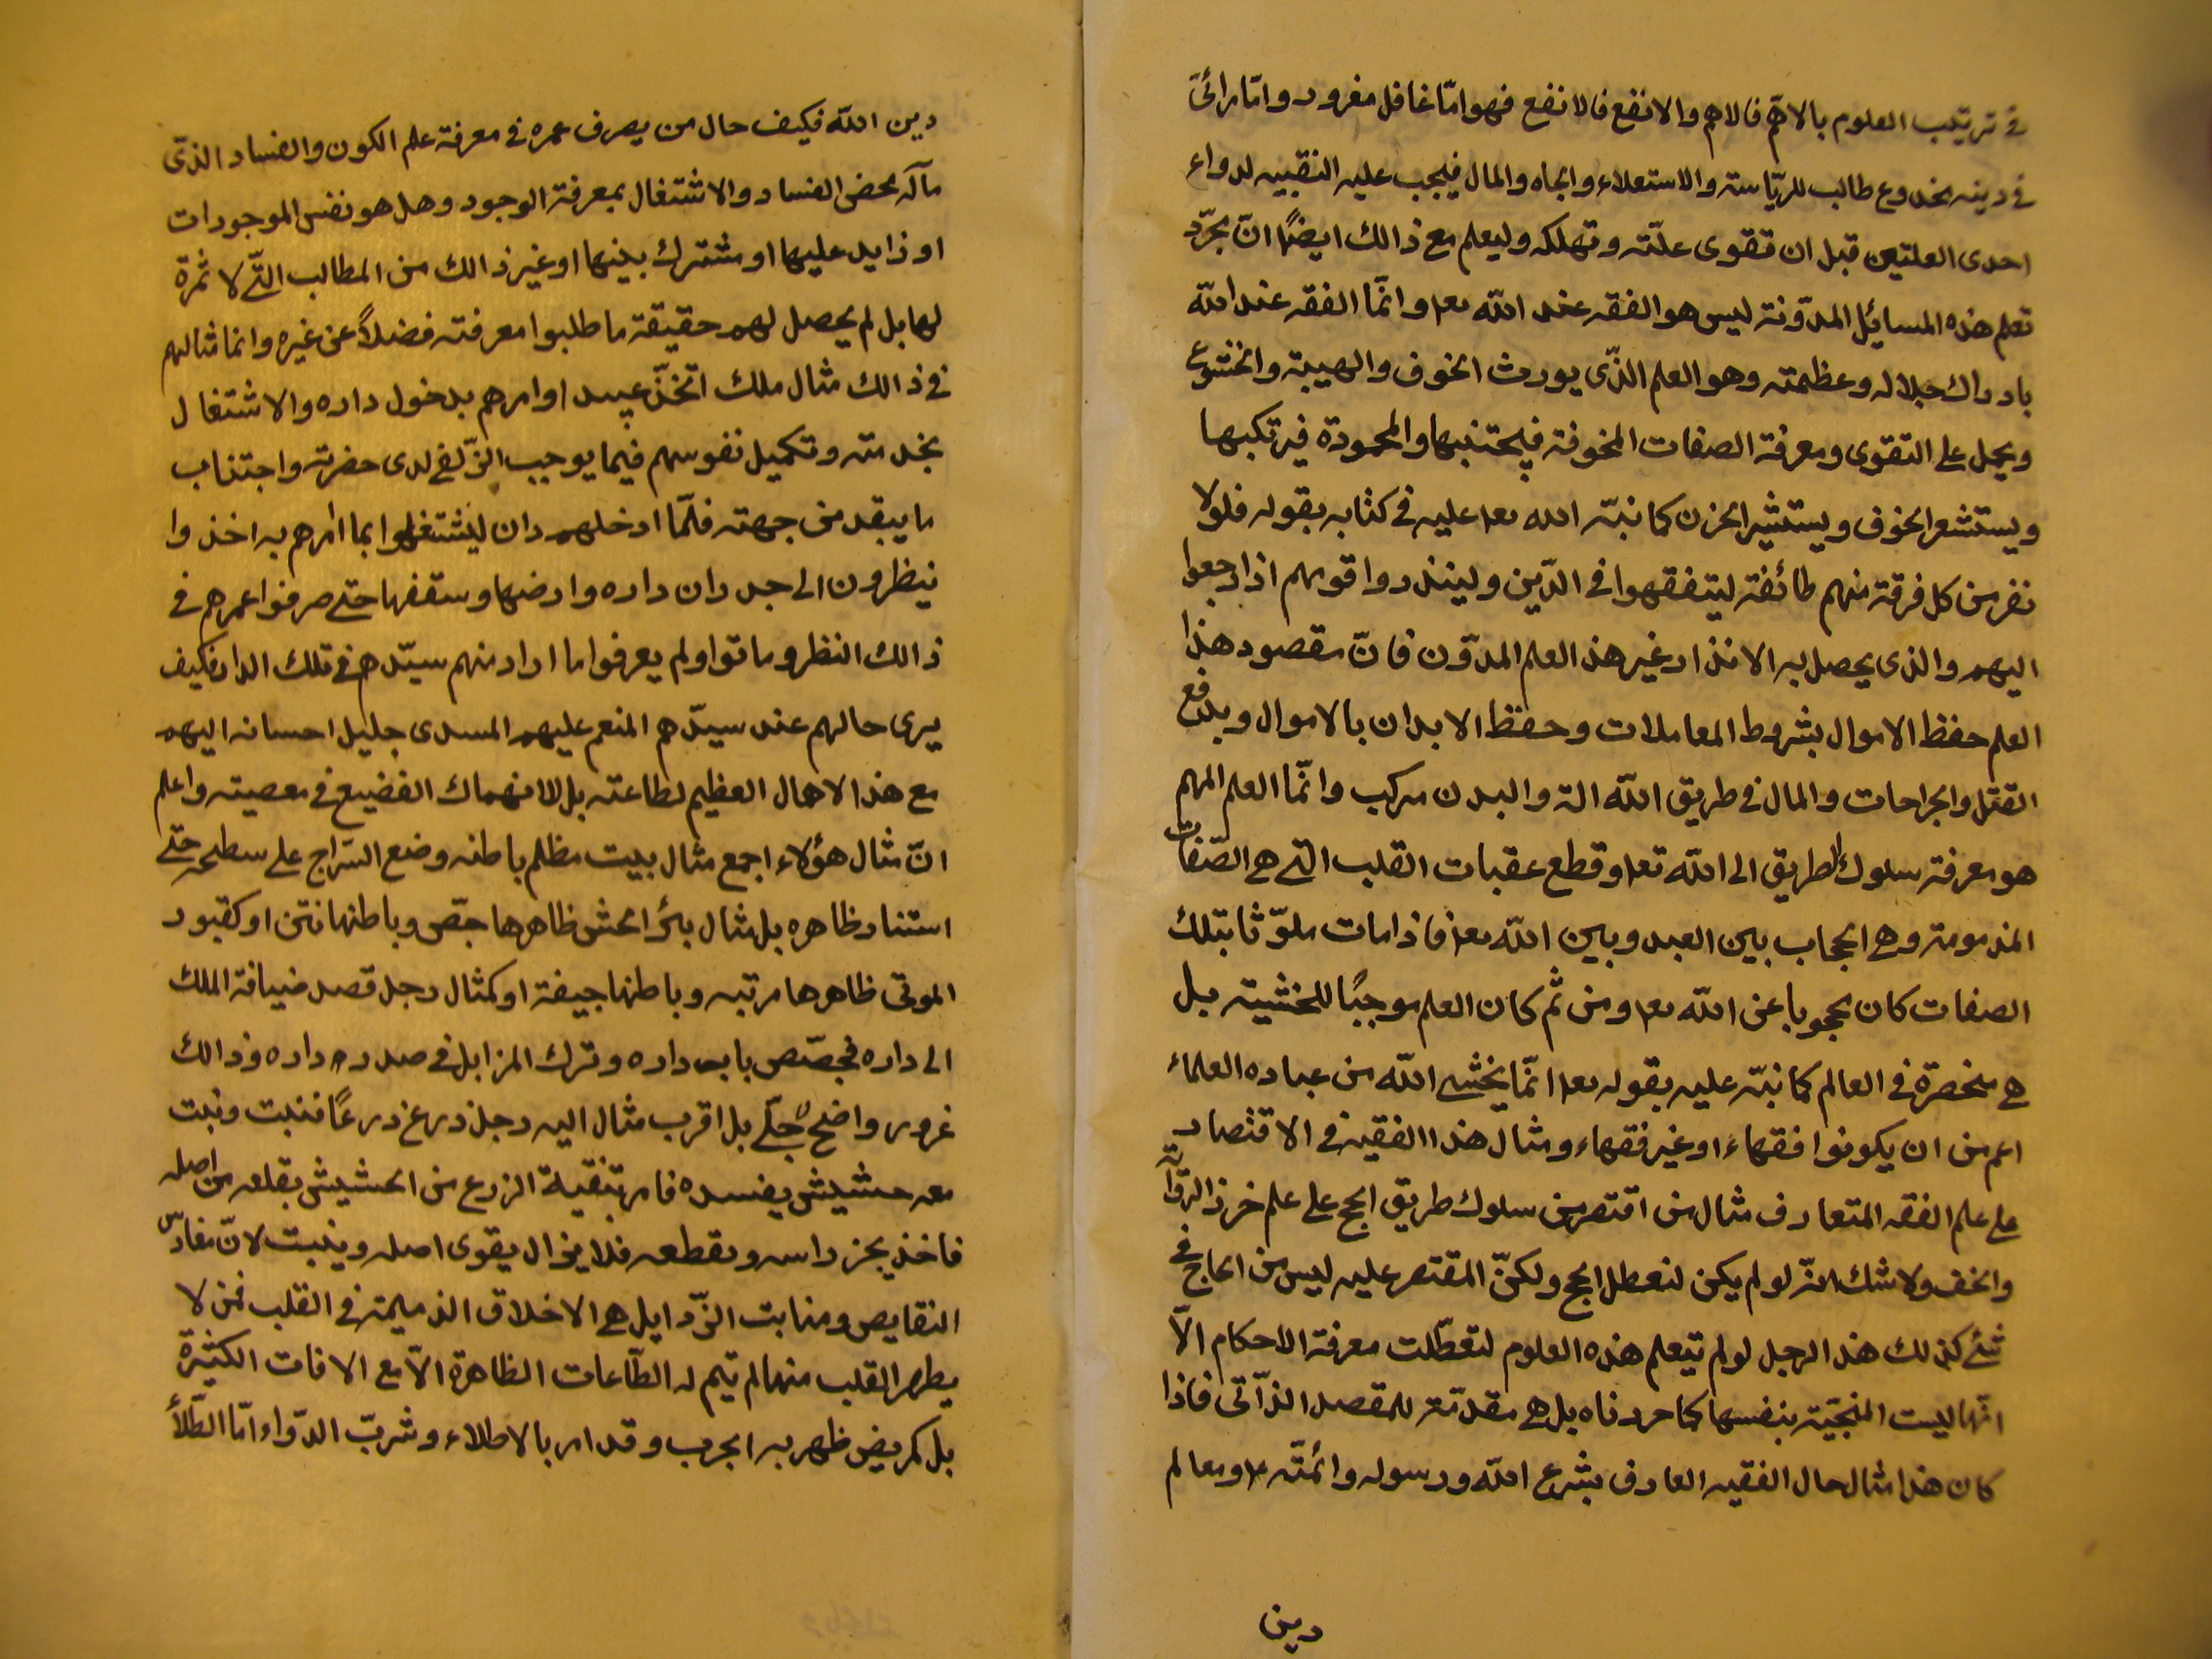 في ترتيب العلوم بالاهّم فالاهم والانفع فالانفع فهو امّا غافل مغرور وامّا مرائىّ
في دينه مخدوع طالب للريّاسة والاستعلاء والجاه والمال فيجب عليه التنبيه لدواء
احدى العلتين قبل ان تقوى علّته وتهلكه وليعلم مع ذالك ايضًا انّ مجرّد
تعلم هذه المسائل المدّونة ليس هو الفقه عند اللّه تعا وانّما الفقه عند اللّه
بادراك جلاله وعظمته وهو العلم الذّى يورث الخوف والهيبة والخشوع
ويحمل على التقوى ومعرفة الصفات المخوفة فيجتنبها والمحمودة فيرتكبها
ويستشعر الخوف ويستثير الحزن كما نبّه الله تعا عليه في كتابه بقوله فلولا
نفر من كل فرقة منهم طائفة ليتفقهوا في الدّين ولينذروا قومهم اذا رجعوا
اليهم والذى يحصل به الانذار غير هذ العلم المدّون فانّ مقصود هذا
العلم حفظ الاموال بشروط المعاملات وحفظ الابدان بالاموال وبدفع
القتل والجراحات والمال في طريق اللّه الة والبدن مركب وانّما العلم المهم
هو معرفة سلوك الطريق الى اللّه تعا وقطع عقبات القلب التى هي الصّفات
المذمومة وهي الحجاب بين العبد وبين اللّه تعا فاذا مات ملوّثا بتلك
الصفات كان محجوبا عن اللّه تعا ومن ثم كان العلم موجبًا للخشية بل
هي منحصرة في العالم كما نبّه عليه بقوله تعا انّما يخشى اللّه من عباده العلماء
اعم من ان يكونوا فقهاء او غير فقهاء ومثال هذا الفقيه في الاقتصار
على علم الفقه المتعارف مثال من اقتصر من سلوك طريق الحج على علم خرز الراوية
والخف ولا شك انّه لو لم يكن لتعطل الحج ولكنّ المقتصر عليه ليس من الحاج في
شئ كذلك هذ الرجل لو لم يتعلم هذه العلوم لتعطّلت معرفة الاحكام الّا
انّها ليست المنجيّة بنفسها كما حررناه بل هي مقدّمة للمقصد الذّاتى فاذا
كان هذا مثال حال الفقيه العارف بشرع اللّه ورسوله وائمّته ومعالم
دين
دين اللّه فكيف حال من يصرف عمره في معرفة علم الكون والفساد الذّى
مآله محض الفساد والاشتغال بمعرفة الوجود وهل هو نفس الموجودات
او زايد عليها او مشترك بينها او غير ذالك من المطالب التّى لا ثمرة
لها بل لم يحصل لهم حقيقة ما طلبوا معرفته فضلاً عن غيره وانما مثالهم
في ذالك مثال ملك اتّخذ عبيدا وامرهم بدخول داره والاشتغال
بخدمته وتكميل نفوسهم فيما يوجب الزّلفى لدى حضرته واجتناب
ما يبعد من جهته فلمّا ادخلهم دان ليشتغلوا بما امرهم به اخذوا
ينظرون الى جدران داره وارضها وسقفها حتى صرفوا عمرهم في
ذالك النظر وماتوا ولم يعرفوا ما اراد منهم سيّدهم في تلك الدار فكيف
يرى حالهم عند سيدّهم المنعم عليهم المسدى جليل احسانه اليهم
مع هذ الاهمال العظيم لطاعته بل الانهماك الفضيع في معصيته واعلم
انّ مثال هؤلاء اجمع مثال بيت مظلم باطنه وضع السّراج على سطحه حتى
استنار ظاهره بل مثال بئر الحش ظاهرها جصّ وباطنها نتن او كقبور
الموتى ظاهرها مرتبه وباطنها جيفة او كمثال رجل قصد ضيافة الملك
الى داره فجصّص باب داره وترك المزابل في صدر داره وذالك
غرور واضح جلّى بل اقرب مثال اليه رجل زرع زرعًا فنبت ونبت
معه حشيش يفسده فامر بتنقية الزرع من الحشيش بقلعه من اصله
فاخذ يجز راسه ويقطعه فلا يزال يقوى اصله وينبت لانّ مغارس
النقايص ومنابت الرّذايل هي الاخلاق الذميمة في القلب فمن لا
يطهر القلب منها لم تيم له الطّاعات الظاهرة الّا مع الافات الكثيرة
بل كمريض ظهر به الجرب وقد امر بالاطلاء وشربّ الدّواء امّا الطّلأ